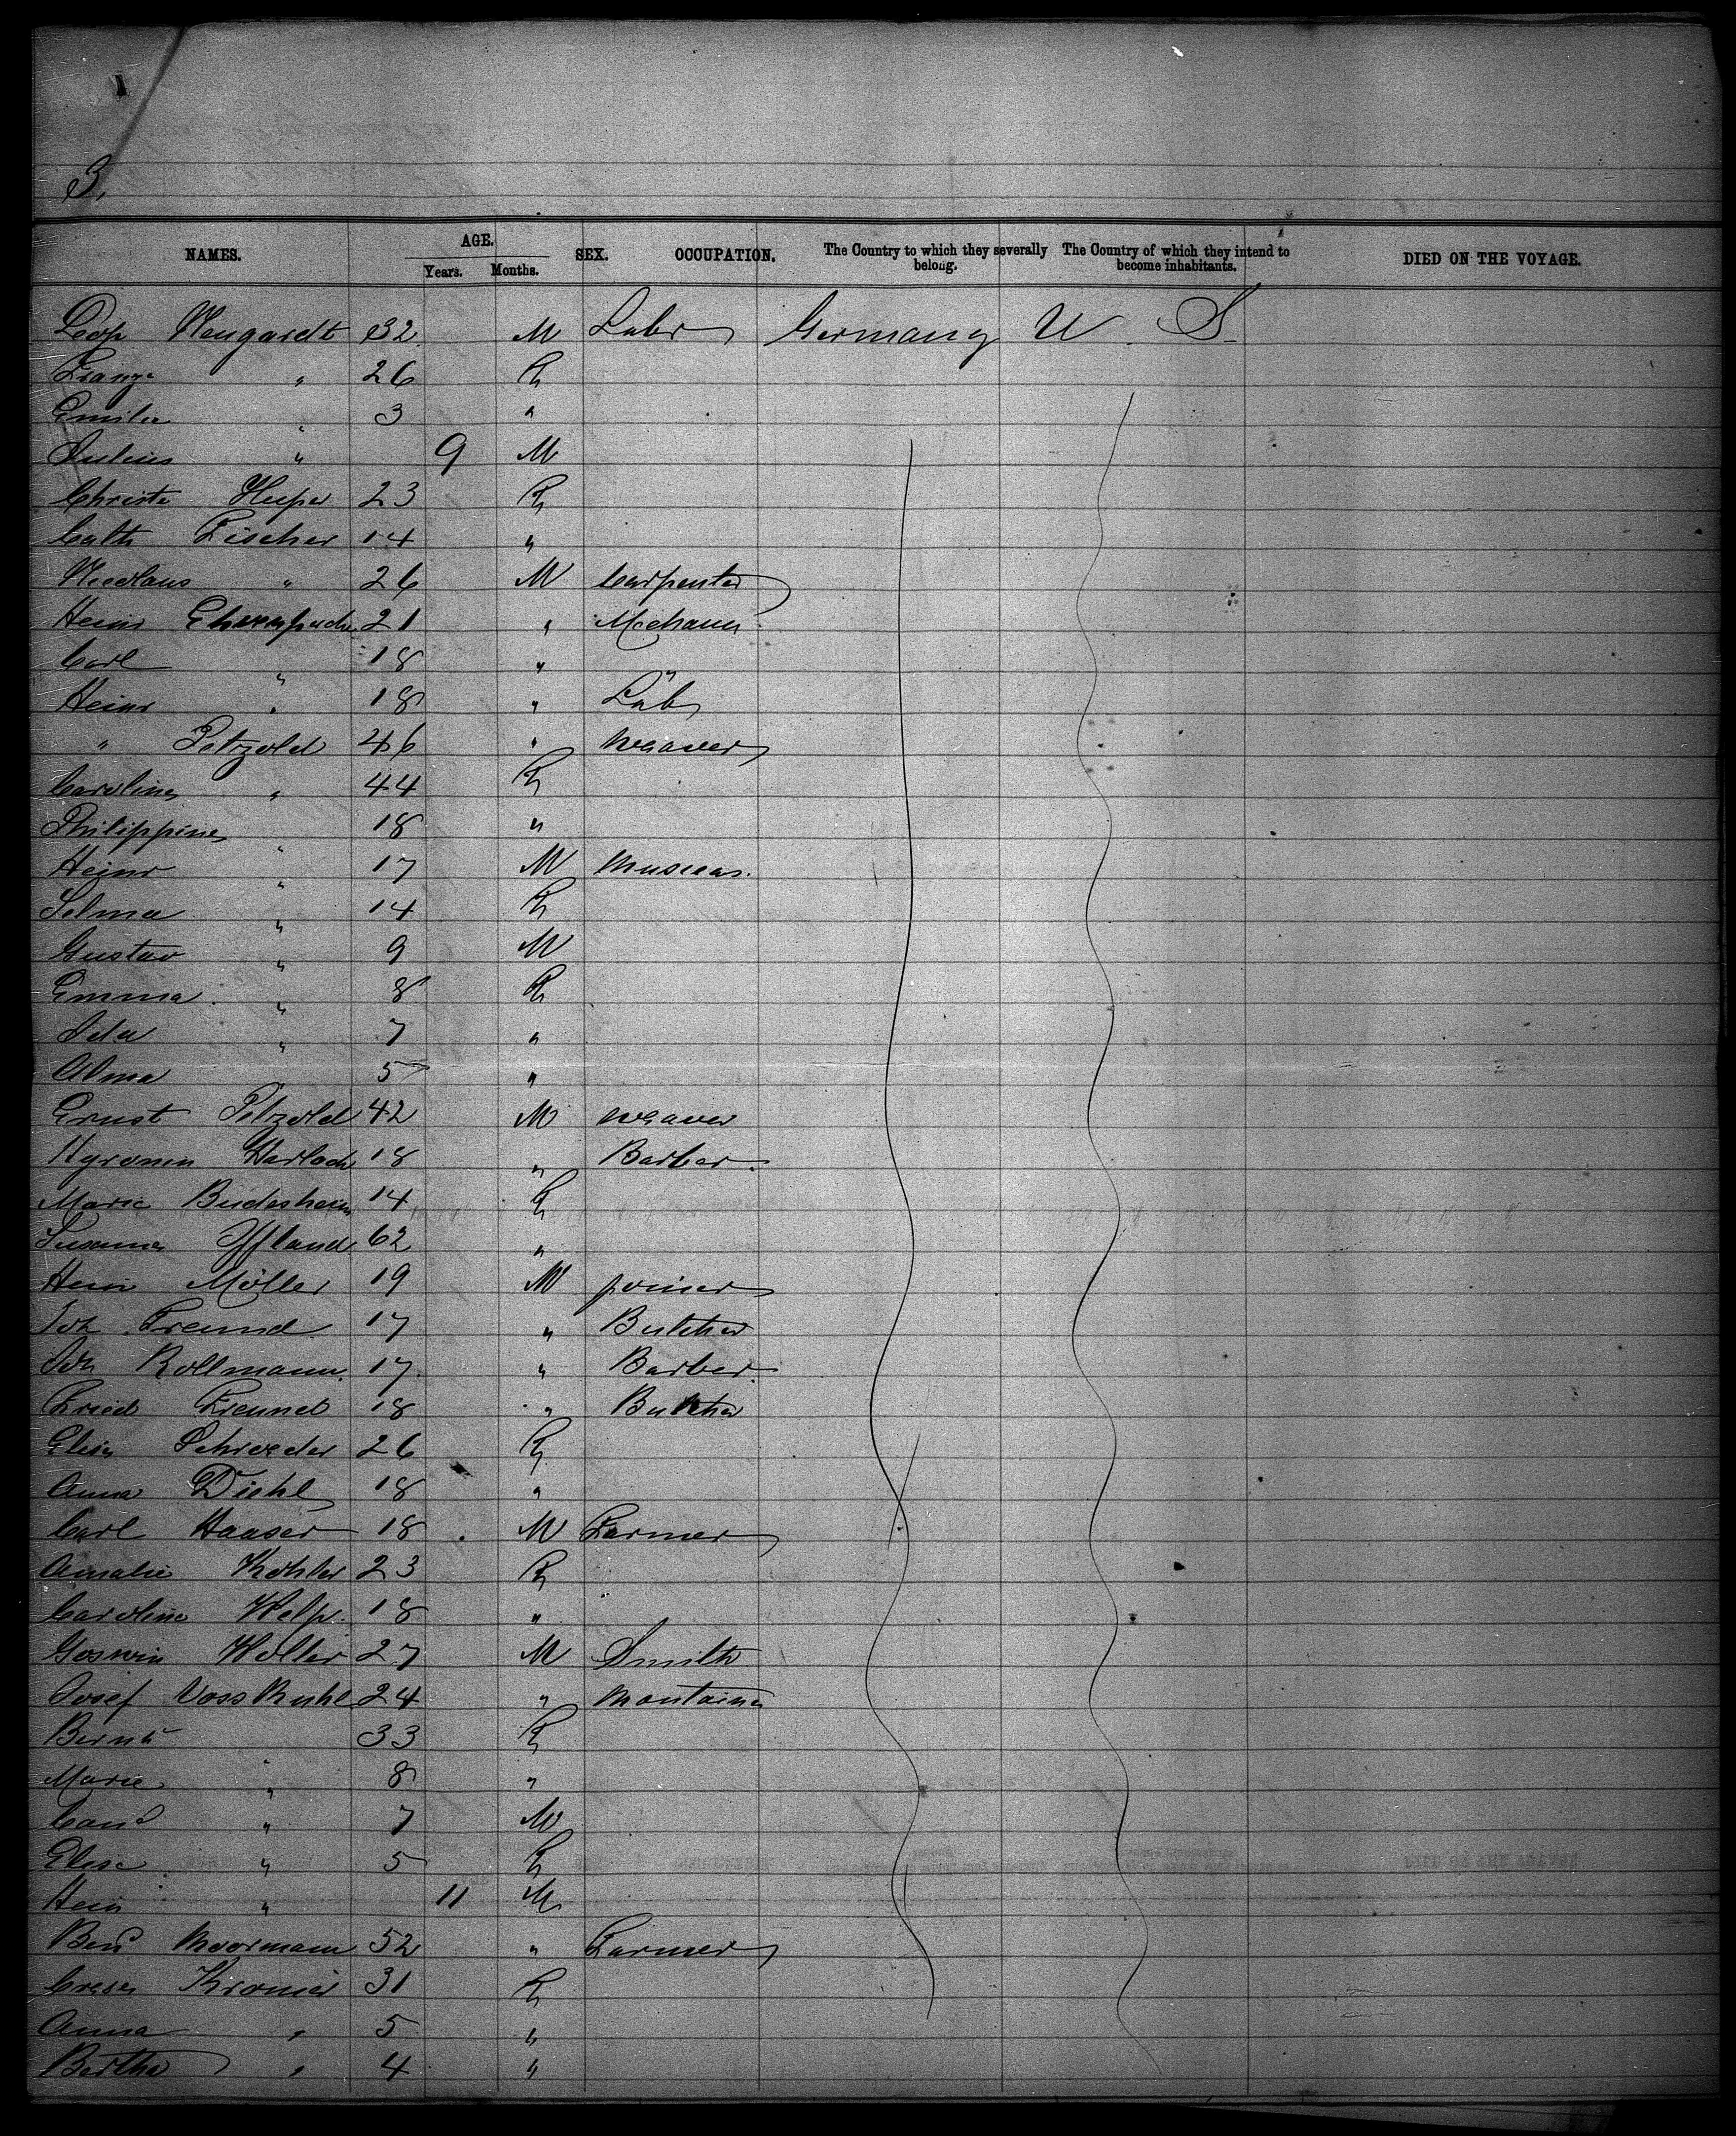 3.
NAMES. AGE. Years. Months. SEX. OCCUPATION. The Country to which they severally belong. The Country of which they intend to become inhabitants. DIED ON THE VOYAGE.
Leop Wengardt 32 M Labr Germany U. S.
Franze " 26 F
Emilie " 3 "
Julius " 9 M
Christe 23 F
Cath Fischer 14 "
Nicolaus " 26 M Carpenter
Heinr 21 " Mechan
Carl " 18 " "
Heinr " 18 " Lab
" Petzold 46 " Weaver
Caroline " 44 F
Philippine " 18 "
Heinr " 17 M Musician
Selma " 14 F
Gustav " 9 M
Emma " 8 F
Ida " 7 "
Alma 5 "
Ernst Petzold 42 M weaver
Hyronim 18 " Barber
Marie Budesheim 14 F
Susanna Iffland 62 "
Hein Möller 19 M joiner
Joh Freund 17 " Butcher
Joh Rollmann 17 " Barber
Fried Freund 18 " Butcher
Elisa Schroeder 26 F
Anna Diehl 18 "
Carl Haaser 18 M Farmer
Amalie Kohler 23 F
Caroline Welp 18 "
Goswin Holler 27 M Smith
Josef Vosskuhl 24 " Montaine
Bernh 33 F
Marie " 8 "
" 7 M
Elise " 5 F
Hein " 11 M
Ben Moormann 52 " Farmer
Kromer 31 F
Anna " 5 "
Bertha " 4 "